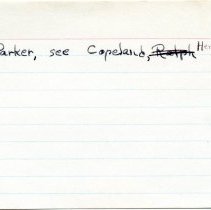 Parker, see Copeland, Ralph Her